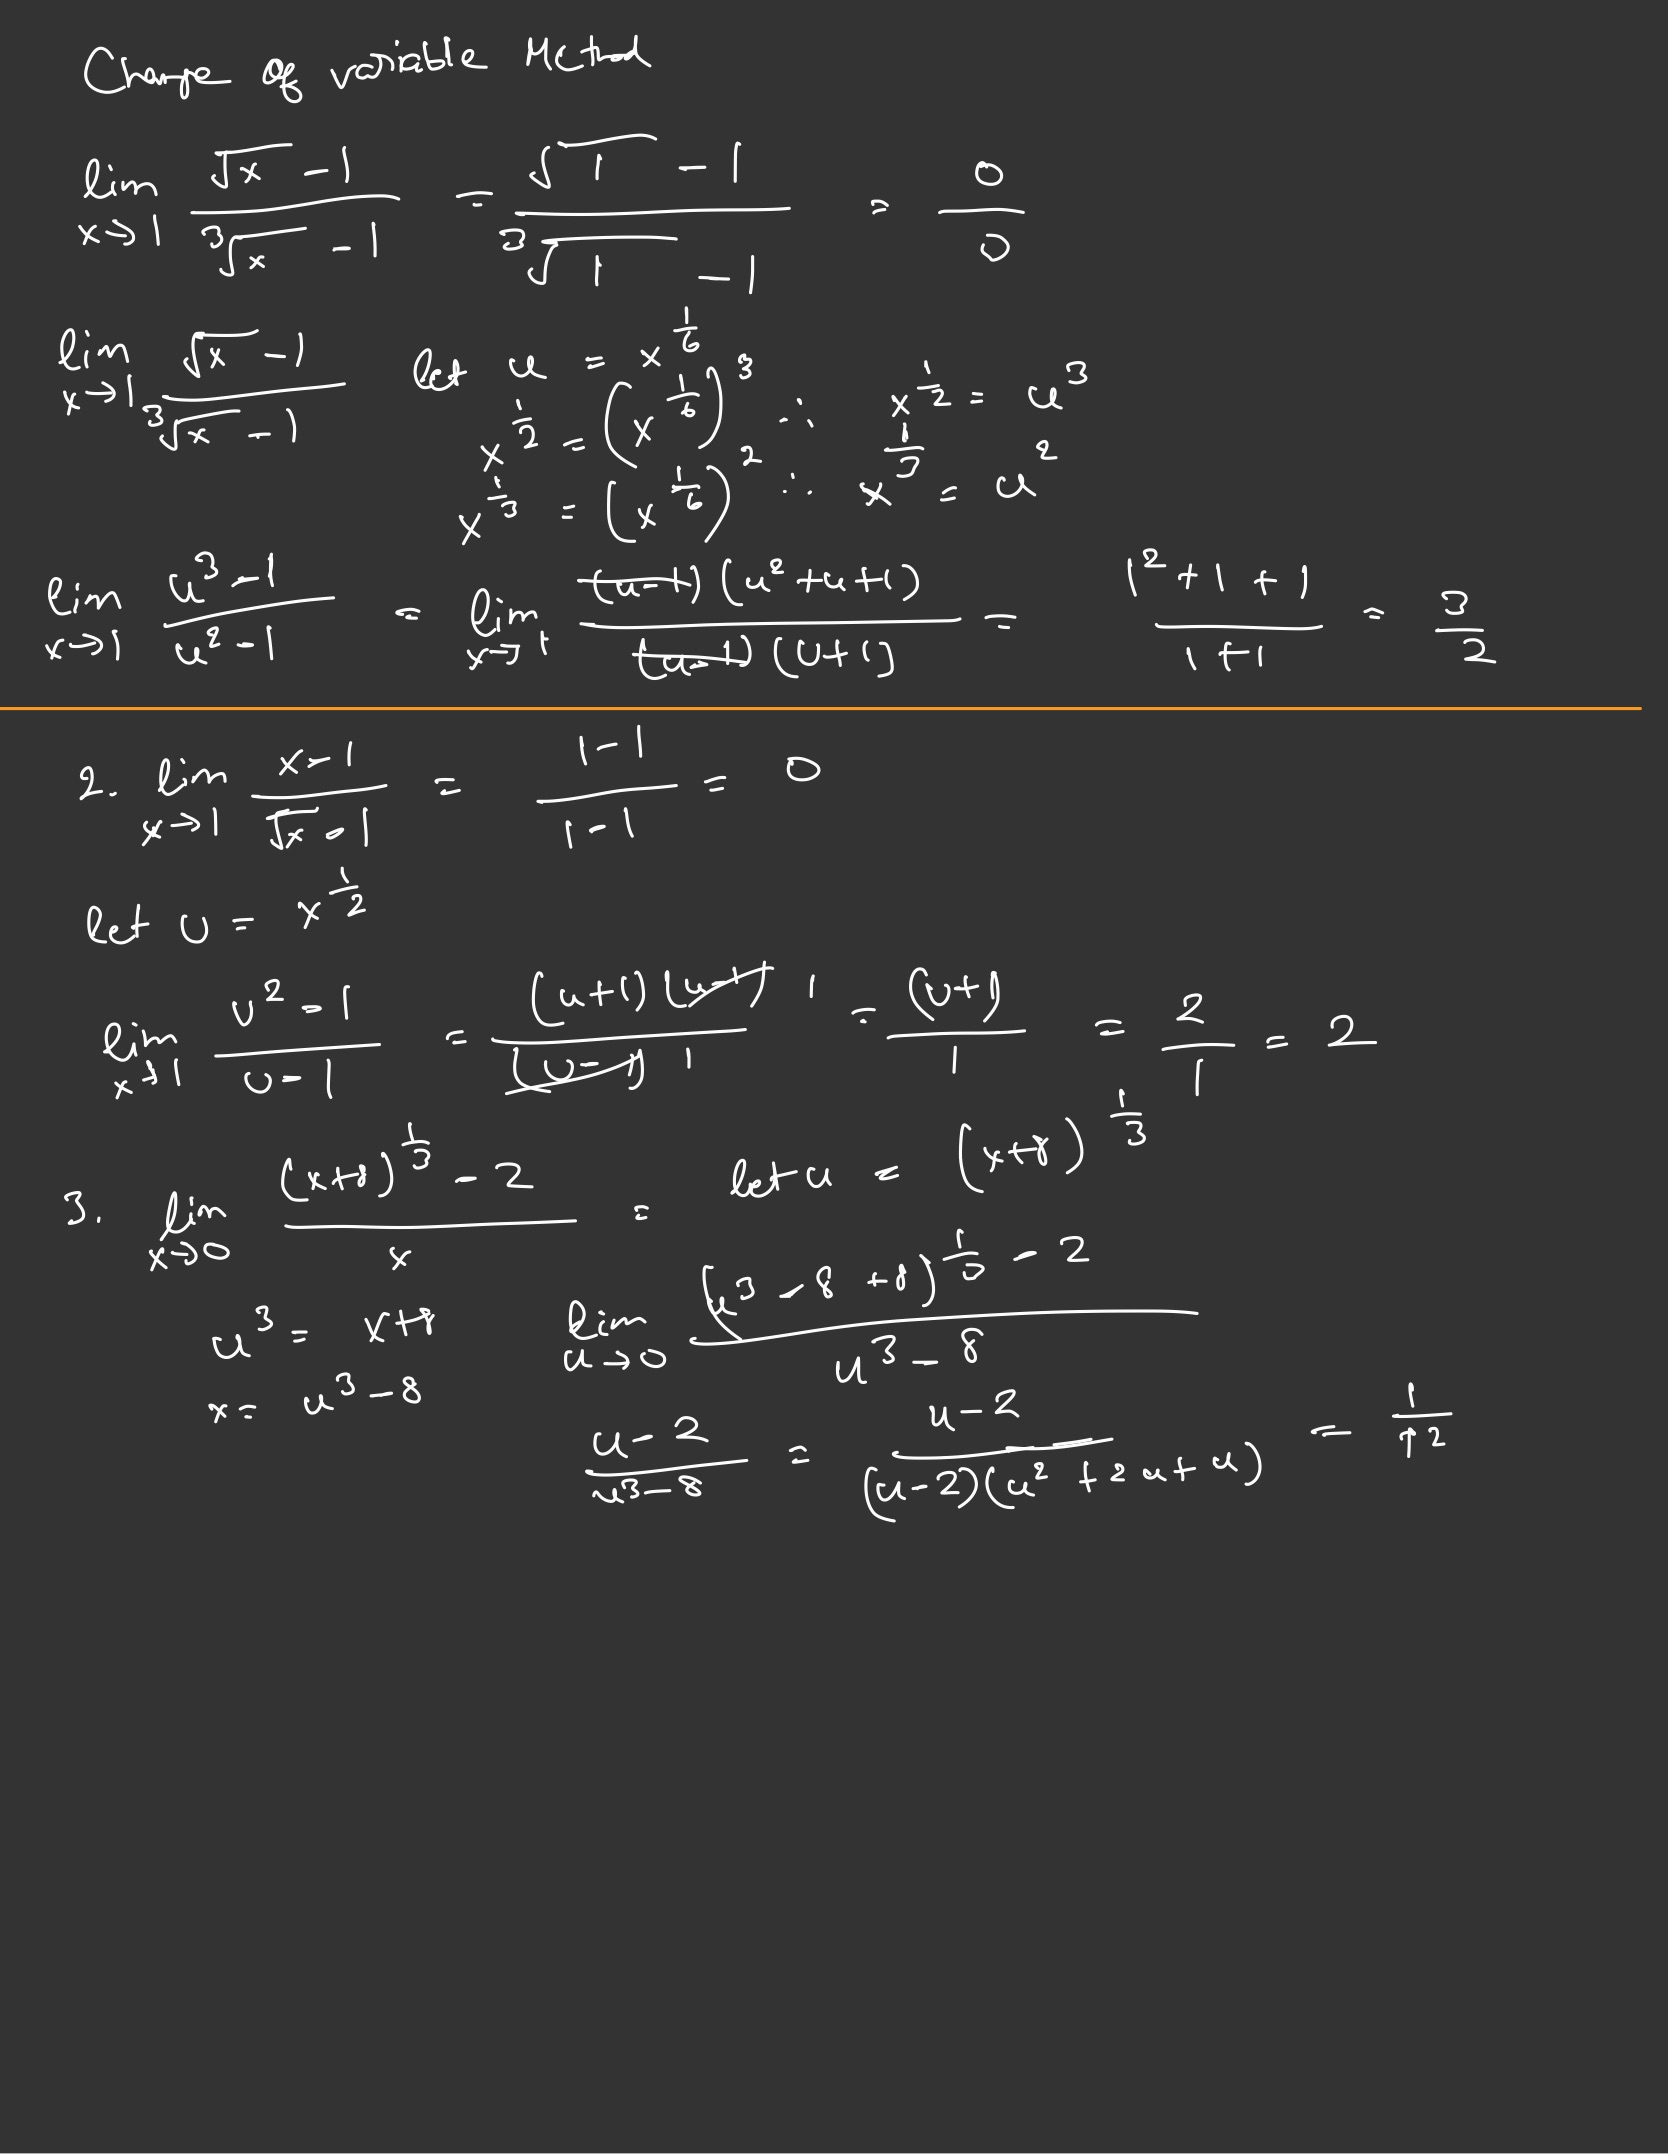 Change of variable Method
lim x→1 (√x - 1)/(∛x - 1) = (√1 - 1)/(∛1 - 1) = 0/0
lim x→1 (√x - 1)/(∛x - 1) let u = x^(1/6)
x^(1/2) = (x^(1/6))^3 ∴ x^(1/2) = u^3
x^(1/3) = (x^(1/6))^2 ∴ x^(1/3) = u^2
lim x→1 (u^3 - 1)/(u^2 - 1) = lim x→1 ((u-1)(u^2+u+1))/((u-1)(u+1)) = (1^2+1+1)/(1+1) = 3/2
2. lim x→1 (x-1)/(√x - 1) = (1-1)/(1-1) = 0
let u = x^(1/2)
lim x→1 (u^2 - 1)/(u - 1) = ((u+1)(u-1) 1)/((u-1) 1) = (u+1)/1 = 2/1 = 2
3. lim x→0 ((x+8)^(1/3) - 2)/x = let u = (x+8)^(1/3)
u^3 = x+8 lim u→0 ((u^3 - 8 + 8)^(1/3) - 2)/(u^3 - 8)
x = u^3 - 8
(u-2)/(u^3-8) = (u-2)/((u-2)(u^2+2u+u)) = 1/12